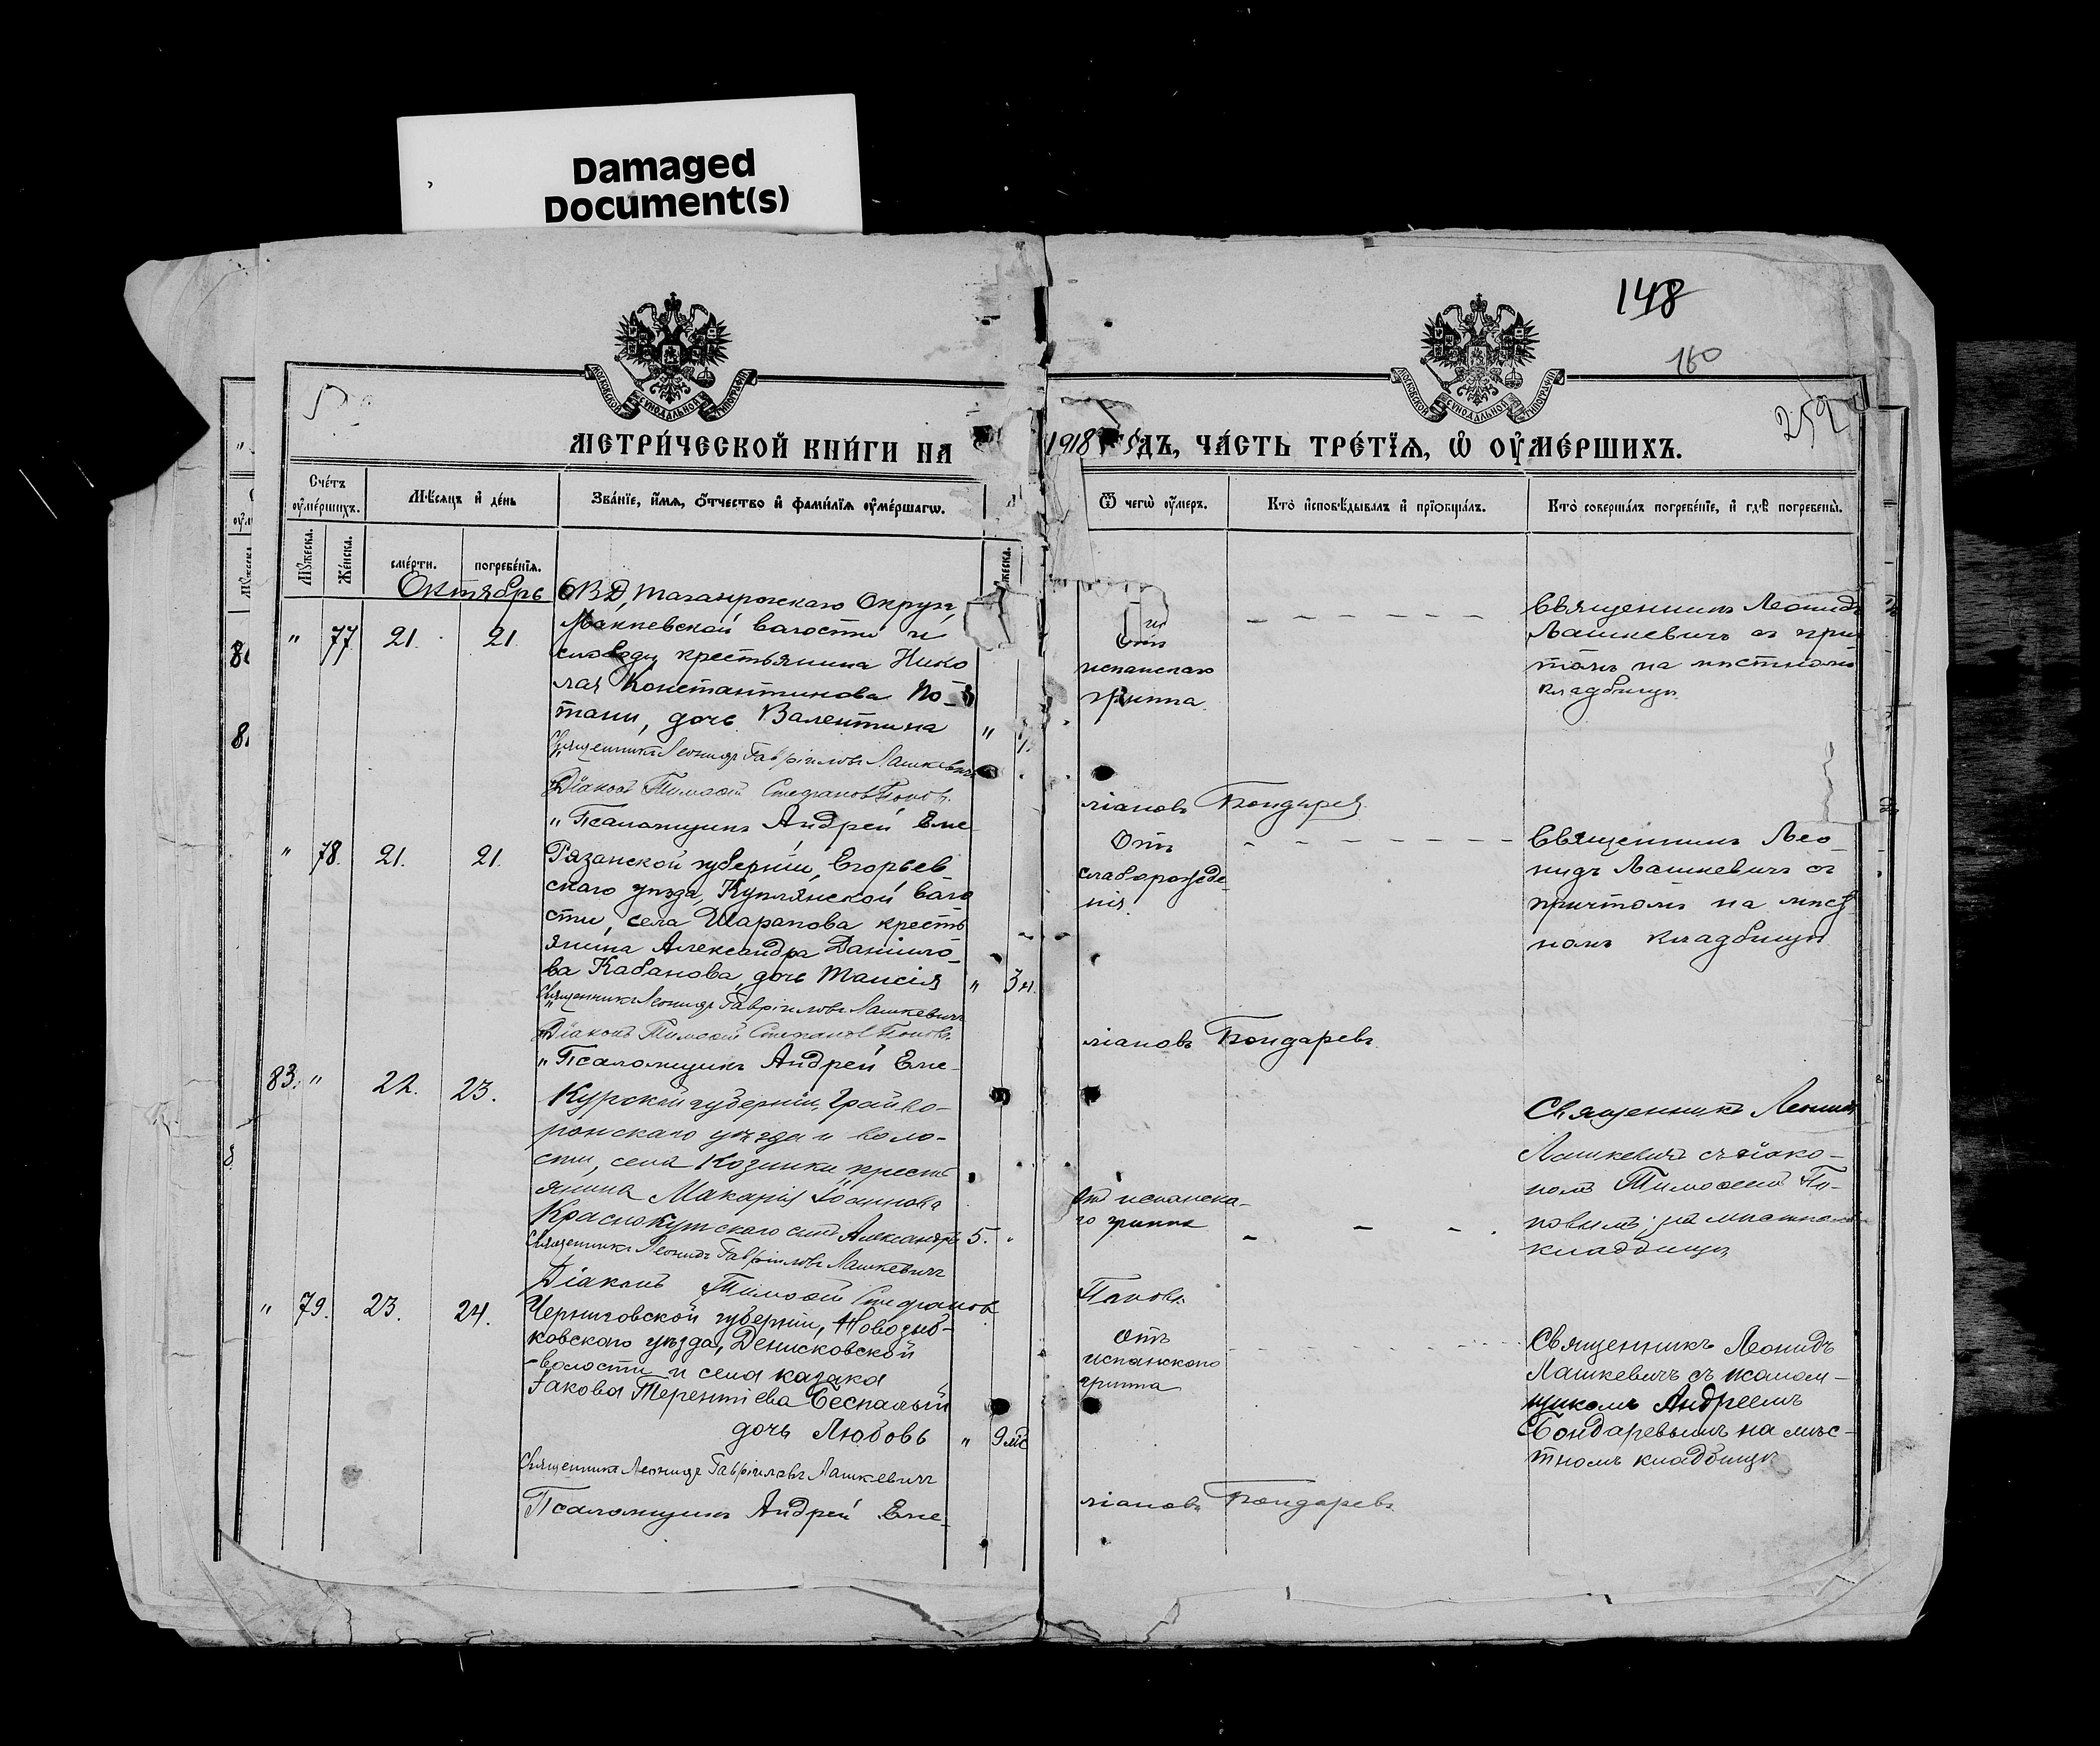 Damaged
Document(s)
148
160
252
МОСКОВСКОЙ СУНОДАЛЬНОЙ ТИПОГРАФІИ
МОСКОВСКОЙ СУНОДАЛЬНОЙ ТИПОГРАФІИ
МЕТРИ́ЧЕСКОЙ КНИ́ГИ НА 1918 ГО́ДЪ, ЧА́СТЬ ТРЕ́ТЇѦ, Ѡ҆ ОУ҆МЕ́РШИХЪ.
Сче́тъ оу҆ме́ршихъ.
Мѣ́сяцъ и҆ де́нь
Зва́нїе, и҆́мѧ, ѻ҆́тчество и҆ фами́лїѧ оу҆ме́ршагѡ.
Ѿ чегѡ̀ оу҆́меръ.
Кто̀ и҆сповѣ́дывалъ и҆ прїѻбща́лъ.
Кто̀ соверша́лъ погребе́нїе, и҆ гдѣ̀ погребены̀.
Мꙋ́жеска.
Же́нска.
сме́рти.
погребе́нїѧ.
Октябрь
" 77 21. 21.
ОВД, Таганрогскаго Округа,
Макеевской волости и
слободы крестьянина Нико
лая Константинова По-
тани, дочь Валентина "
Отъ
испанскаго
гриппа.
Священникъ Леонидъ
Лашкевичъ съ при
томъ на местномъ
кладбищѣ.
Священникъ Леонидъ Гавріиловъ Лашкевичъ
Діаконъ Тимофей Стефановъ Поповъ.
" Псаломщикъ Андрей Еме-
ліановъ Бондаревъ
" 78. 21. 21.
Рязанской губерніи, Егорьев
скаго уѣзда, Куплянской воло
сти, села Шарапова кресть
янина Александра Данило-
ва Кабанова, дочь Таисія " 3 н.
Отъ
слаборожде-
нія.
Священникъ Лео-
нидъ Лашкевичъ съ
причтомъ на мѣст
номъ кладбищѣ
Священникъ Леонидъ Гавріиловъ Лашкевичъ
Діаконъ Тимофей Стефановъ Поповъ.
" Псаломщикъ Андрей Еме-
ліановъ Бондаревъ.
83. " 22. 23.
Курской губерніи, Грайво-
ронскаго уѣзда и воло-
сти, села Козинки, кресть
янина Макарія Іоаннова
Краснокутскаго сынъ Александръ 5. "
Отъ испанска-
го гриппа
Священникъ Леонидъ
Лашкевичъ съ діако-
номъ Тимофеемъ По-
повымъ, на мѣстномъ
кладбищѣ
Священникъ Леонидъ Гавріиловъ Лашкевичъ
Діаконъ Тимофей Стефановъ
Поповъ.
" 79. 23. 24.
Черниговской губерніи, Новозыб-
ковского уѣзда, Денисковской
волости и села казака
Іакова Терентіева Беспалый
дочь Любовь " 9 мѣс
Отъ
испанского
гриппа
Священникъ Леонидъ
Лашкевичъ съ псалом-
щикомъ Андреемъ
Бондаревымъ на мѣс-
тномъ кладбищѣ
Священникъ Леонидъ Гавріиловъ Лашкевичъ
Псаломщикъ Андрей Еме-
ліановъ Бондаревъ.